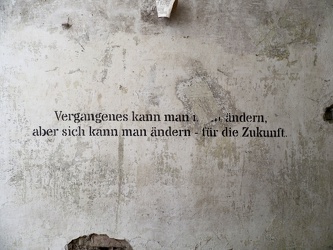 Vergangenes kann man ändern,
aber sich kann man ändern - für die Zukunft.